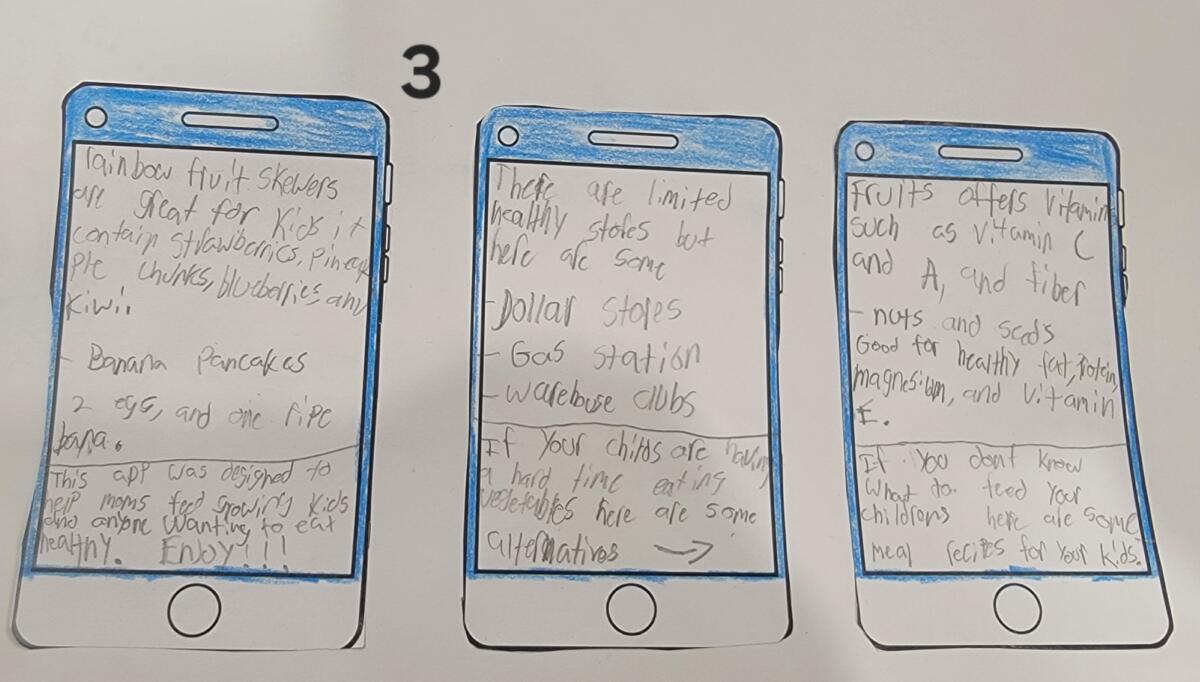 3
rainbow fruit skewers
are great for kids it
contain strawberries, pineap
ple chunks, blueberries, any
kiwi.
- Banana Pancakes
2 egs, and one ripe
bana.
This app was designed to
help moms feed growing kids
and anyone wanting to eat
healthy. Enjoy!!!
There are limited
healthy stores but
here are some
- Dollar stores
- Gas station
- warehouse clubs
If your childs are having
a hard time eating
vegetables here are some
alternatives →
Fruits offers vitamins
such as vitamin C
and A, and fiber
- nuts and seeds
Good for healthy fat, Protein,
magnesium, and vitamin
E.
If you dont know
what to feed your
childrens here are some
meal recipes for your kids.